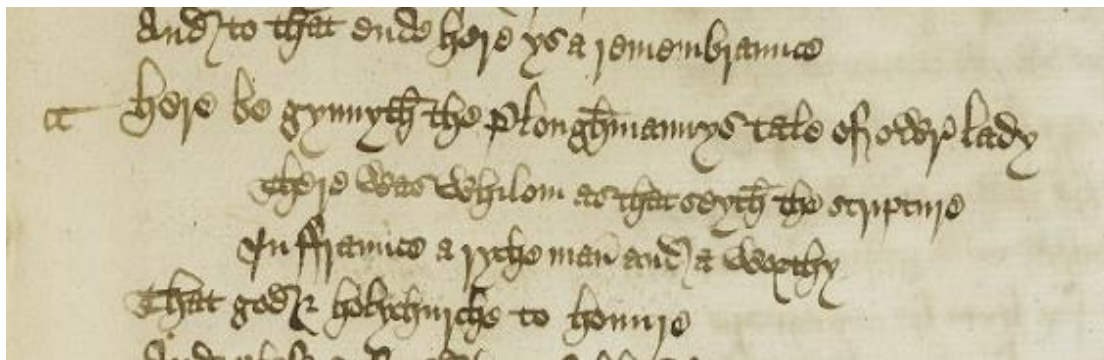 And to that ende here ys a remembraunce
here be gynnyth the Ploughmannys tale of owre lady
there was whilom as that seyth the scripture
In ffraunce a ryche man and a worthy
That god & holychirche to honnure